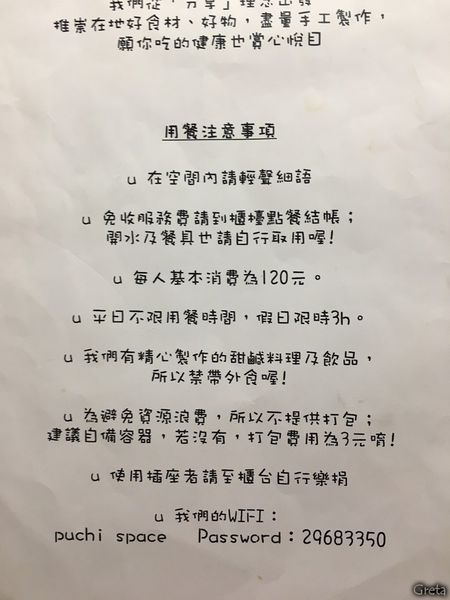 我們從「分享」理念出發
推崇在地好食材、好物，盡量手工製作，
願你吃的健康也賞心悅目
用餐注意事項
u 在空間內請輕聲細語
u 免收服務費請到櫃檯點餐結帳；
開水及餐具也請自行取用喔!
u 每人基本消費為120元。
u 平日不限用餐時間，假日限時3h。
u 我們有精心製作的甜鹹料理及飲品，
所以禁帶外食喔!
u 為避免資源浪費，所以不提供打包；
建議自備容器，若沒有，打包費用為3元唷!
u 使用插座者請至櫃台自行樂捐
u 我們的WIFI：
puchi space Password：29683350
Greta